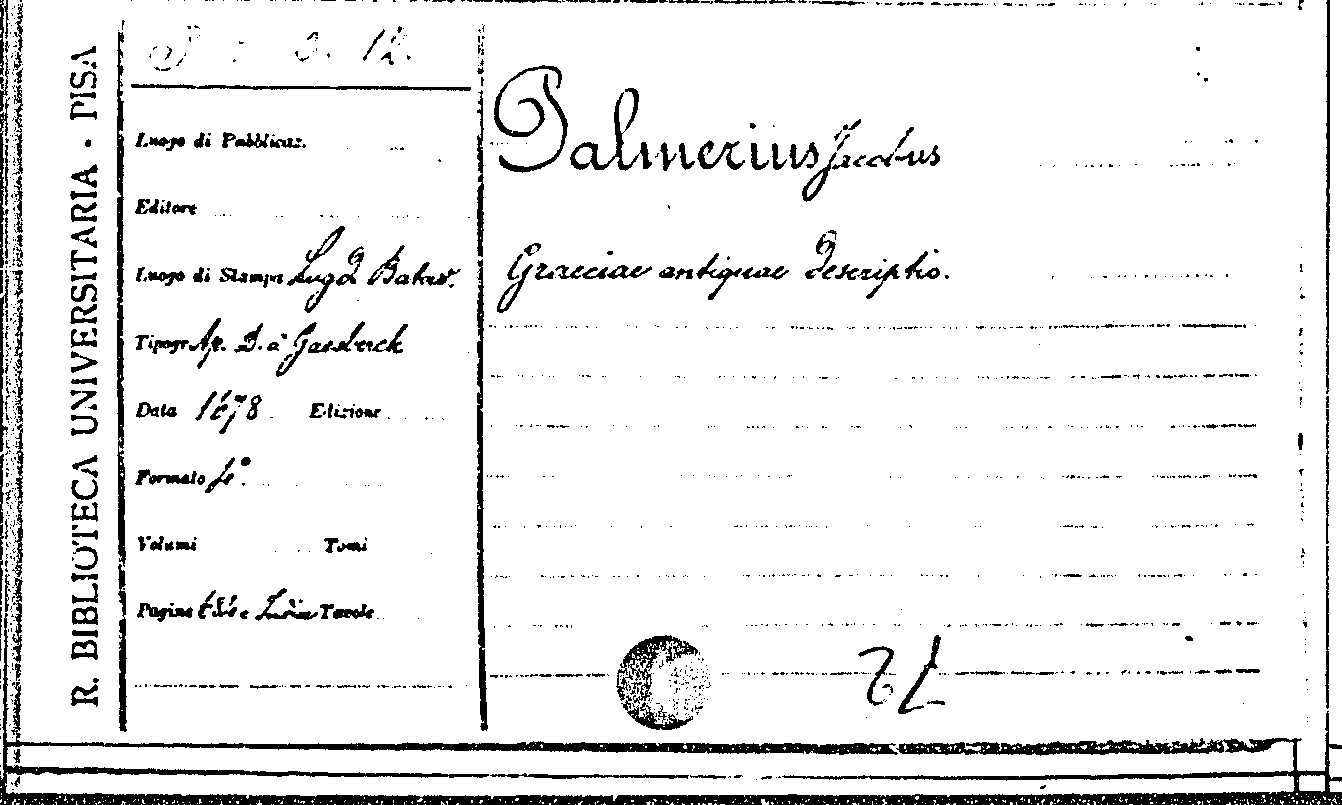 R. BIBLIOTECA UNIVERSITARIA - PISA
3. 12.
Luogo di Pubblicaz.
Editore
Luogo di Stampa Lugd Batav.
Tipogr. Ap. D. a Gaesbeek
Data 1678 Edizione
Formato 4°.
Volumi Tomi
Pagine Tavole
Palmerius Jacobus
Graeciae antiquae descriptio.